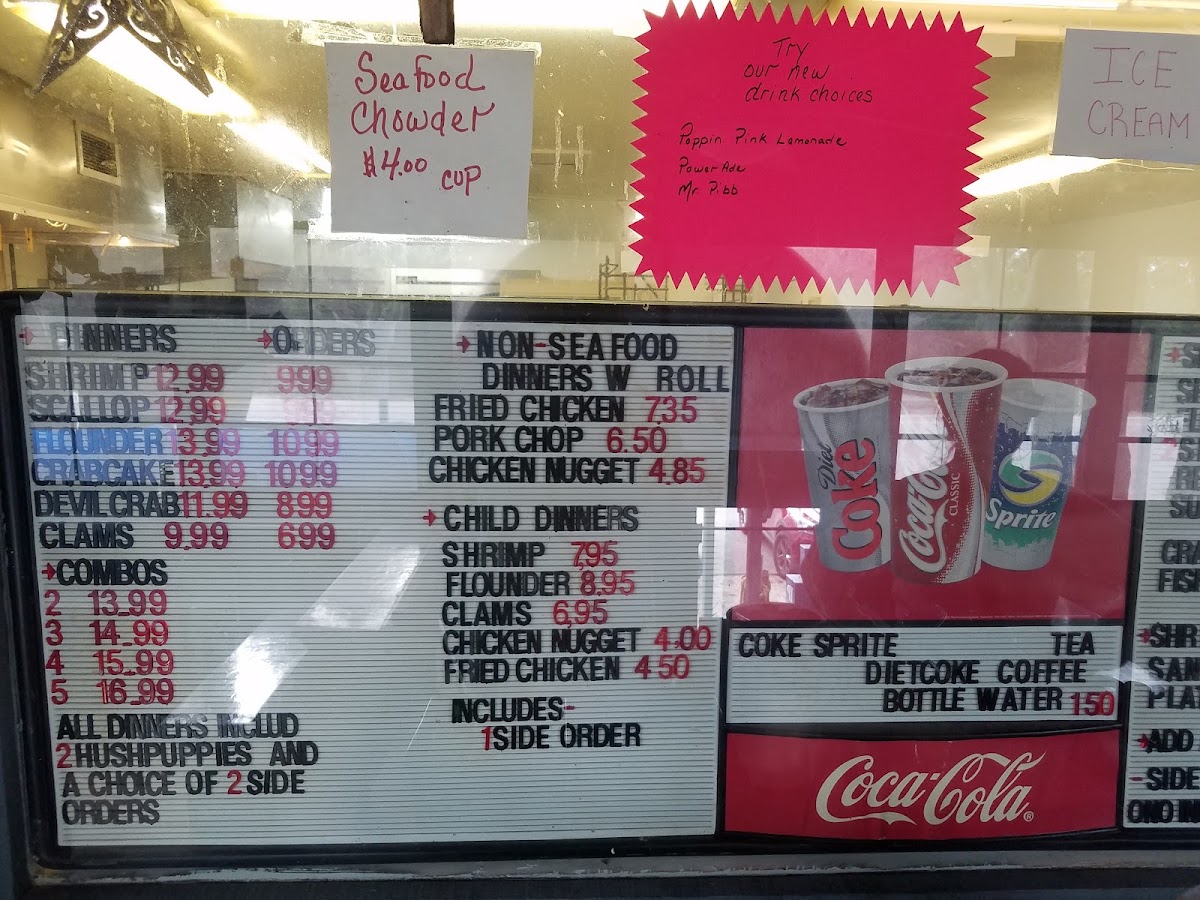 Seafood
Chowder
$4.00 cup
Try
our new
drink choices
Poppin Pink Lemonade
PowerAde
Mr. Pibb
ICE
CREAM
DINNERS ORDERS
SHRIMP 12.99 9.99
SCALLOP 12.99
FLOUNDER 13.99 10.99
CRABCAKE 13.99 10.99
DEVILCRAB 11.99 8.99
CLAMS 9.99 6.99
COMBOS
2 13.99
3 14.99
4 15.99
5 16.99
ALL DINNERS INCLUD
2 HUSHPUPPIES AND
A CHOICE OF 2 SIDE
ORDERS
NON-SEAFOOD
DINNERS W ROLL
FRIED CHICKEN 7.35
PORK CHOP 6.50
CHICKEN NUGGET 4.85
CHILD DINNERS
SHRIMP 7.95
FLOUNDER 8.95
CLAMS 6.95
CHICKEN NUGGET 4.00
FRIED CHICKEN 4.50
INCLUDES-
1 SIDE ORDER
Diet Coke
Coca-Cola CLASSIC
Sprite
COKE SPRITE TEA
DIETCOKE COFFEE
BOTTLE WATER 1.50
Coca-Cola®
ADD
-SIDE